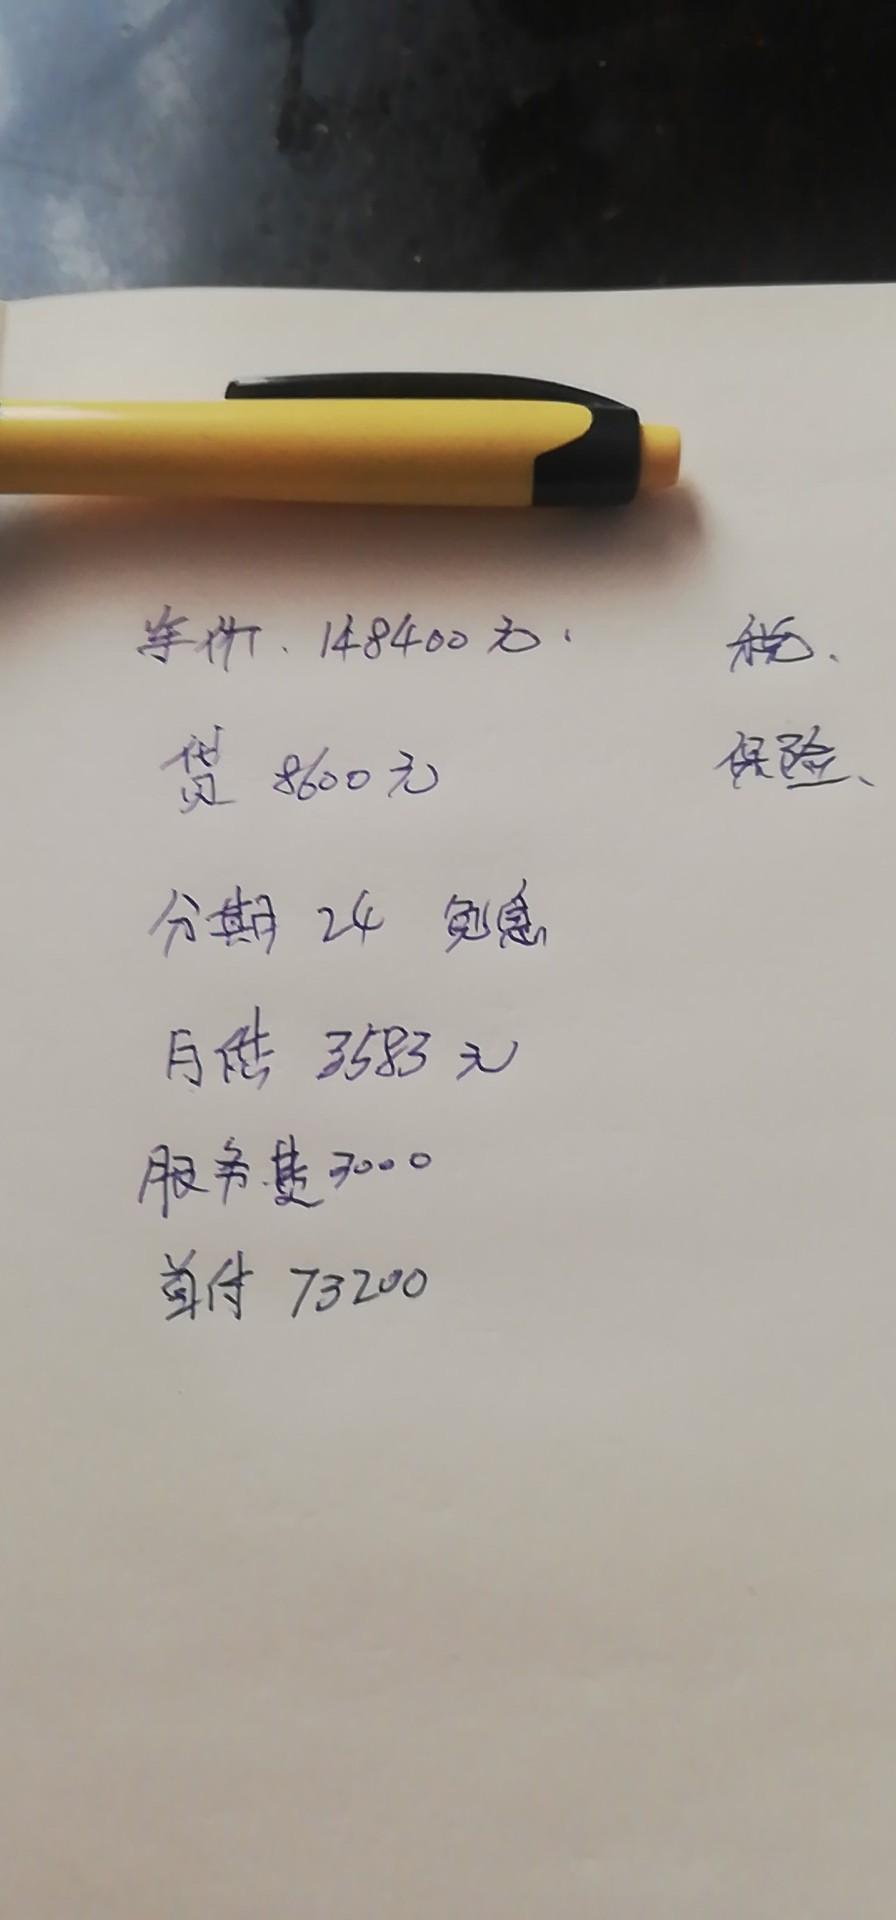 车价、148400元. 税.
贷 8600元 保险、
分期 24 免息
月供 3583元
服务费3000
首付 73200